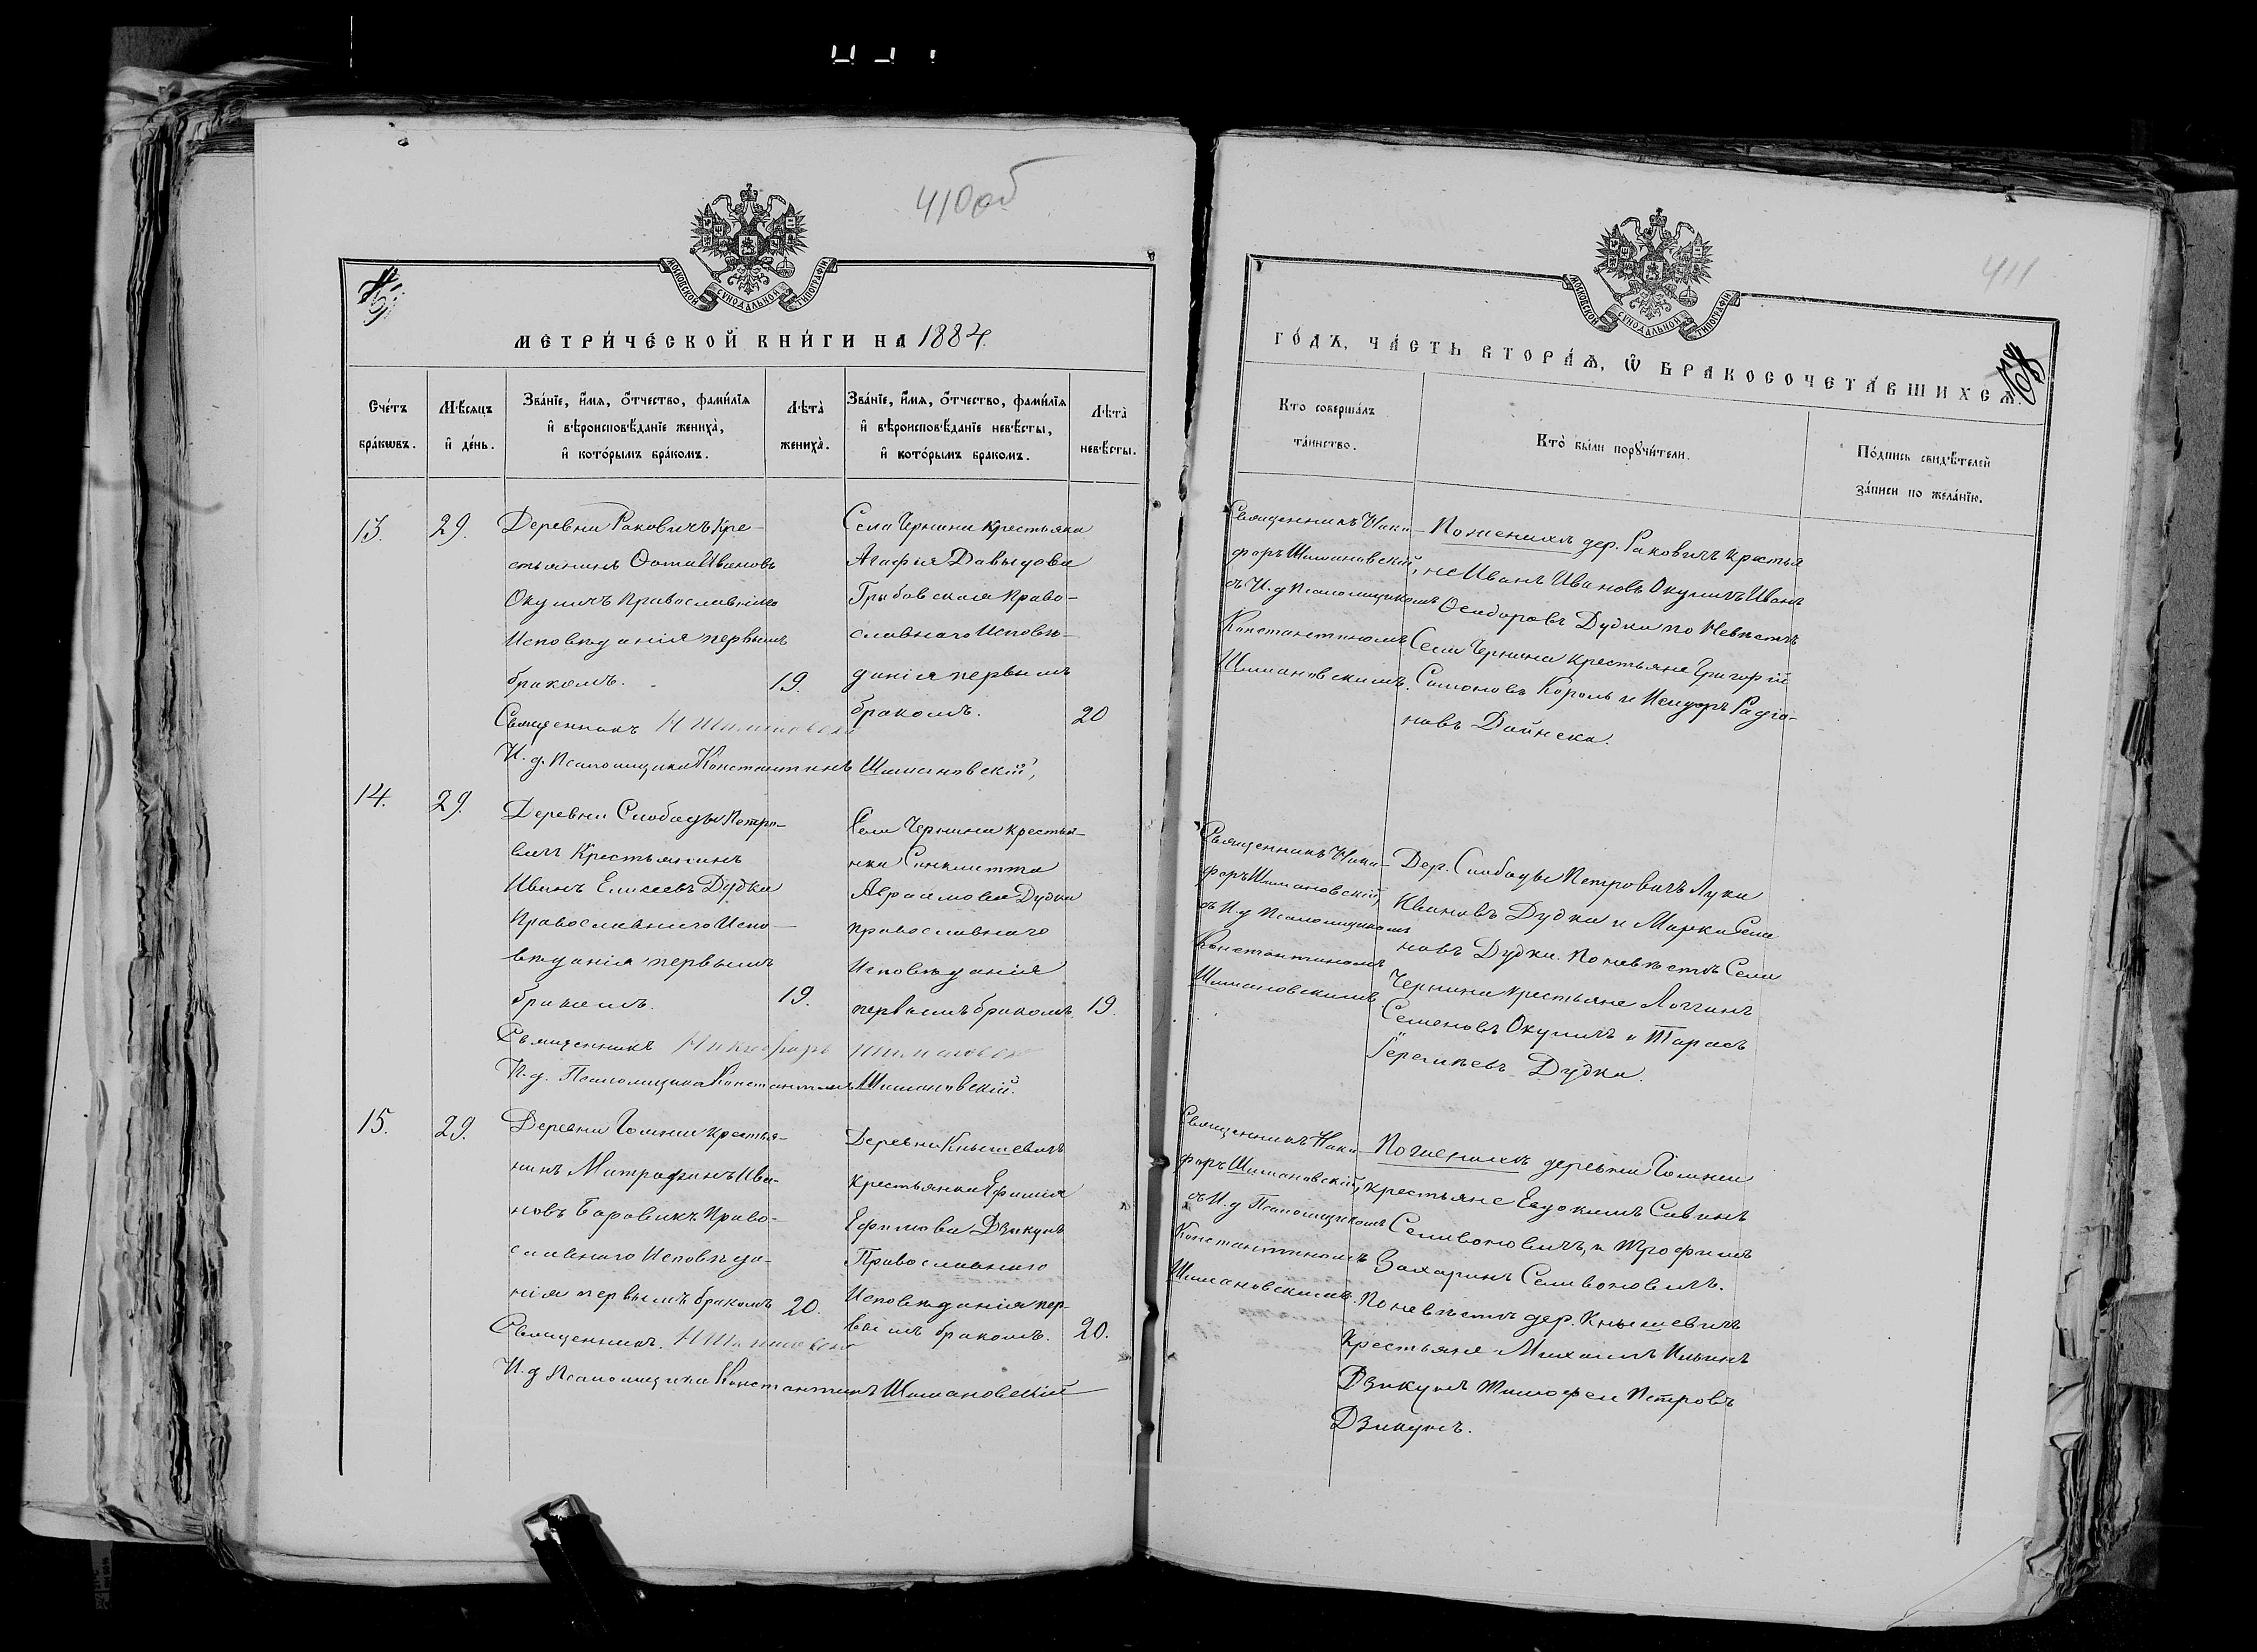 410 об
МОСКОВСКОЙ СѴНОДАЛЬНОЙ ТИПОГРАФІИ
МЕТРИ́ЧЕСКОЙ КНИ́ГИ НА 1884.
Сче́тъ бра́кωвъ.
Мѣ́сяцъ и҆ де́нь.
Зва́нїе, и҆́мя, ѻ҆́тчество, фами́лїя и҆ вѣроисповѣ́данїе жениха̀, и҆ кото́рымъ бра́комъ.
Лѣ́та̀ жениха̀.
Зва́нїе, и҆́мя, ѻ҆́тчество, фами́лїя и҆ вѣроисповѣ́данїе невѣ́сты, и҆ кото́рымъ бракомъ.
Лѣ́та̀ невѣ́сты.
13.
29.
Деревни Раковичъ Кре-
стьянинъ Ѳома Ивановъ
Окуличъ Православнаго
Исповѣданія первымъ
бракомъ.
19.
Села Чернина крестьянка
Агафія Давыдова
Грыбовская Право-
славнаго Исповѣ-
данія первымъ
бракомъ.
20
Священникъ Н Шимановскі
И. д. Псаломщика Константинъ Шимановскій,
14.
29.
Деревни Слободы Петро-
вичъ Крестьянинъ
Иванъ Елисеевъ Дудка
Православнаго Испо-
вѣданія первымъ
бракомъ.
19.
Села Чернина крестья-
нка Синклитта
Авраамова Дудка
православнаго
Исповѣданія
первымъ бракомъ.
19.
Священникъ Никифоръ Шимановск
И. д. Псаломщика Константинъ Шимановскій.
15.
29.
Деревни Гомзки Крестья-
нинъ Митрофанъ Ива-
новъ Боровикъ Право-
славнаго Исповѣда-
нія первымъ бракомъ
20.
Деревни Кнышевичъ
крестьянка Ефимія
Ефимова Дзикунъ
Православнаго
Исповѣданія пер-
вымъ бракомъ.
20.
Священникъ. Н Шимановскі
И. д Псаломщика Константинъ Шимановскій
411
МОСКОВСКОЙ СѴНОДАЛЬНОЙ ТИПОГРАФІИ
ГО́ДЪ, ЧА́СТЬ ВТОРА́Ѧ, Ѡ҆ БРАКОСОЧЕТА́ВШИХСѦ.
Кто совершáлъ та́инство.
Кто̀ бы́ли порꙋчи́тели.
По́дпись свидѣ́телей за́писи по жела́нїю.
Священникъ Ники-
форъ Шимановскій,
съ И. д Псаломщикомъ
Константиномъ
Шимановскимъ.
По женихѣ дер. Раковичъ крестья
не Иванъ Ивановъ Окуличъ Иванъ
Ѳеодоровъ Дудка по Невѣстѣ
Села Чернина крестьяне Григорій
Самоновъ Король и Исидоръ Радіо-
новъ Дайнека.
Священникъ Ники-
форъ Шимановскій,
съ И. д Псаломщикомъ
Константиномъ
Шимановскимъ
Дер. Слободы Петровичъ Лука
Ивановъ Дудка и Марко Семе
новъ Дудка. По невѣстѣ Села
Чернина крестьяне Логгинъ
Семеновъ Окуличъ и Тарасъ
Дудка.
Священникъ Ники-
форъ Шимановскій,
съ И. д Псаломщикомъ
Константиномъ
Шимановскимъ.
По женихѣ деревни Гомзки
крестьяне Евдокимъ Савинъ
Селивоновичъ, и Трофимъ
Захаринъ Селивоновичъ.
По невѣстѣ дер. Кнышевичъ
Крестьяне Михаилъ Ильинъ
Дзикунъ Тимофей Петровъ
Дзикунъ.